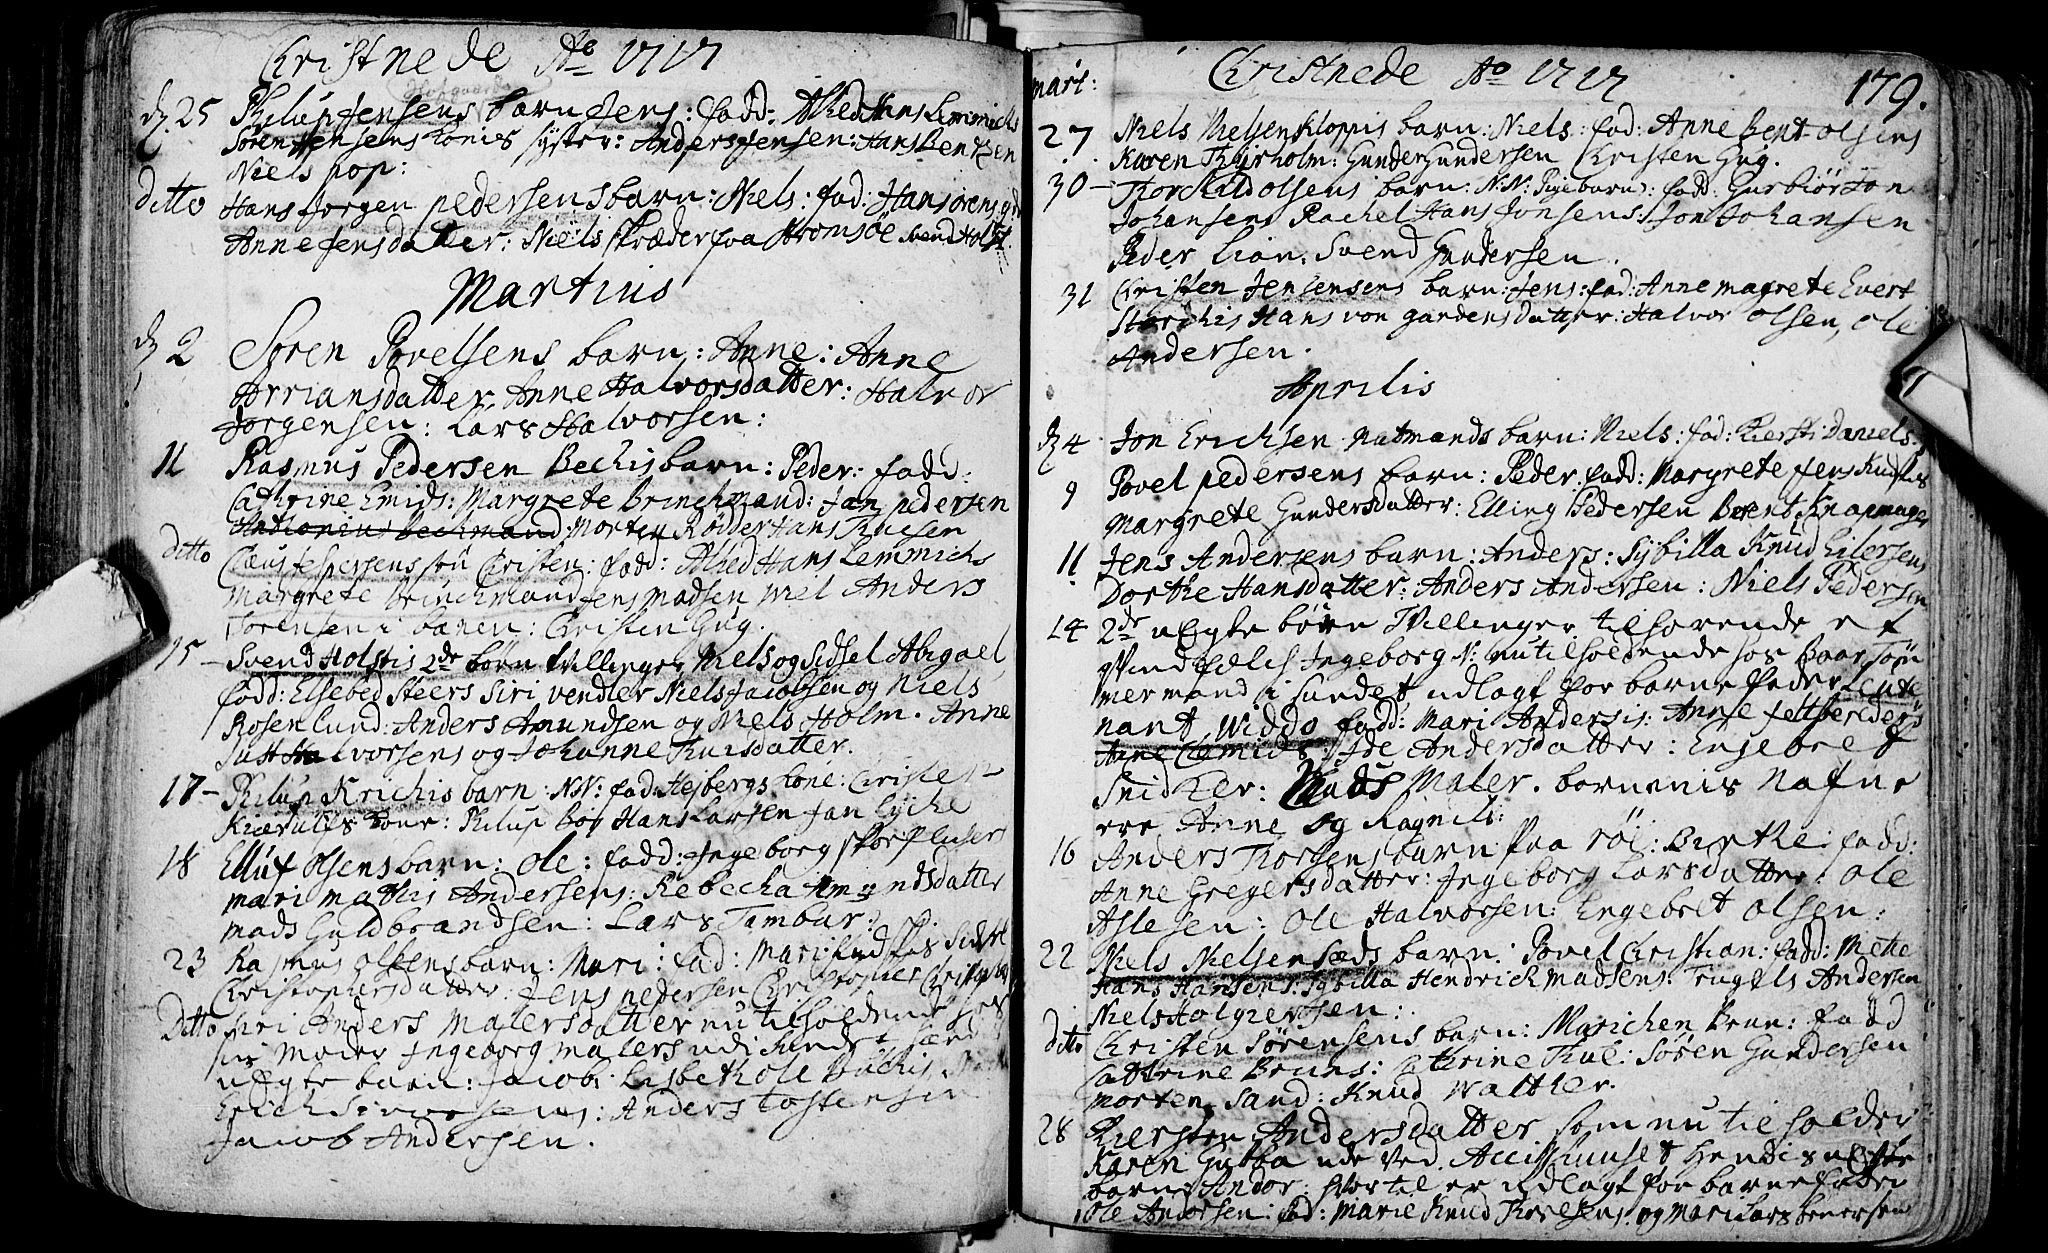 Christnede Ao 1717
d. 25 Philup Jensens barn Jens: fadd: Alhed Hans Lemmichs
Søren Jensens Konis syster: Anders Jensen: Hans Bentzen
Niels pop:
Ditto Hans Jørgen pedersens barn: Niels: fad: Hans
Anne Jensdatter: Niels skræder fra Stromsöe Svend Holst.
Martius
d. 2 Søren Povelsens barn: Anne: Anne
Arriansdatter Anne Halvorsdatter: Halvor
Jorgensen: Lars Halvorsen:
11 Rasmus Pedersen Bechis barn: Peder: fadd:
Cathrine Emids: Margrete Brinchmand: Jan pedersen
Morten Rödder Hans Thuesen
Ditto Claus Jespersens sön Christen: fadd: Alhed Hans Lemmichs
Margrete Brinchmand Jens Madsen Wiel Anders
Sørensen i banen: Christen Gug.
15 – Svend Holstis 2de börn tvillinger Niels og Sidsel Abigael
fadd: Elsebed Steers Siri vendler Niels Jacobsen og Niels
Rosenlund: Anders Amundsen og Niels Holm. Anne
Just Halvorsens og Johanne Thuisdatter.
17 – Philup Krichis barn: NN: fad: Hesbergs Kone: Christen
Kierulfs Kone: Philup boy Hans Larsen Jan Lyche
18 Elluf olsens barn: Ole: fadd: Ingeborg
mari mathis Andersens: Rebecka Amundsdatter
mads Guldbrandsen: Lars Tambur:
23 Rasmus olsens barn: Mari: fad: Mari Sidsel
Christophersdatter: Jens pedersen Christopher
Ditto Siri Anders Malersdatter nu tilholdende hos
sin Moder Ingeborg Malers udi Sundet
uEgte barn: Jacob: Lisbeth Ole Buchis
Erich Simonsens: Anders Tostensen
Jacob Andersen.
Mart: Christnede Ao 1717 179.
27 Niels Nielsen Kloppis barn: Niels: fad: Anne Bent olsens
Karen Thyrholm: Gunder Gundersen Christen Gug.
30 – Thorchild olsens barn: N:N: Pigebarn: fadd: Gurbiör Jon
Johansens Rachel Hans Jonsens: Jon Johansen
Peder Lian: Svend Gundersen.
31 Christen Jensens barn: Jens: fad: Anne Magrete Evert
Storchis Hans von Gardens datter: Halvor olsen, ole
Andersen.
Aprilis
d. 4 Jon Erichsen Natmands barn: Niels: fad: Kiersti Daniels.
9 Povel pedersens barn: Peder: fadd: Margrete Jens
Margrete Gundersdatter: Elling Pedersen Bent Knapmager
11 Jens Andersens barn: Anders: Sybilla Knud Eilersens
Dorthe Hansdatter: Anders Andersen: Niels Pedersen
14 2de uEgte börn Tvillinger tilhørende et
qvindfolch Ingeborg N: nu tilholdende hos Baar Tøm
mermand i Sundet udlagt for barnefader Leute
nant Widdo fadd: Mari Andersis: Anne
Ide Andersdatter: Engebret
Snidker: Mads Maler. börnenis Nafne
ere Anne og Ragnil:
16 Anders Thorsens barn paa röi: Birthe: fadd:
Anne Gregersdatter: Ingeborg Larsdatter: Ole
Aslesen: Ole Halvorsen: Engebret olsen:
22 Niels Nielsen barn: Povel Christian: fadd: Mette
Hans Hansens: Sybilla Hendrich Madsens: Trugels Andersen
Niels Holgersen:
Ditto Christen Sørensens barn: Marichen Brun: fadd
Cathrine Bruns: Cathrine Thul: Søren Gundersen
Morten Sand: Knud Walther.
28 Kiersten Andersdatter som nu tilholder
Karen Gubba ude ved hendis uEgte
barn: Andor: hvortil er udlagt for barnefader
Ole Andersen: fad: Marie Knud og Mari Lars